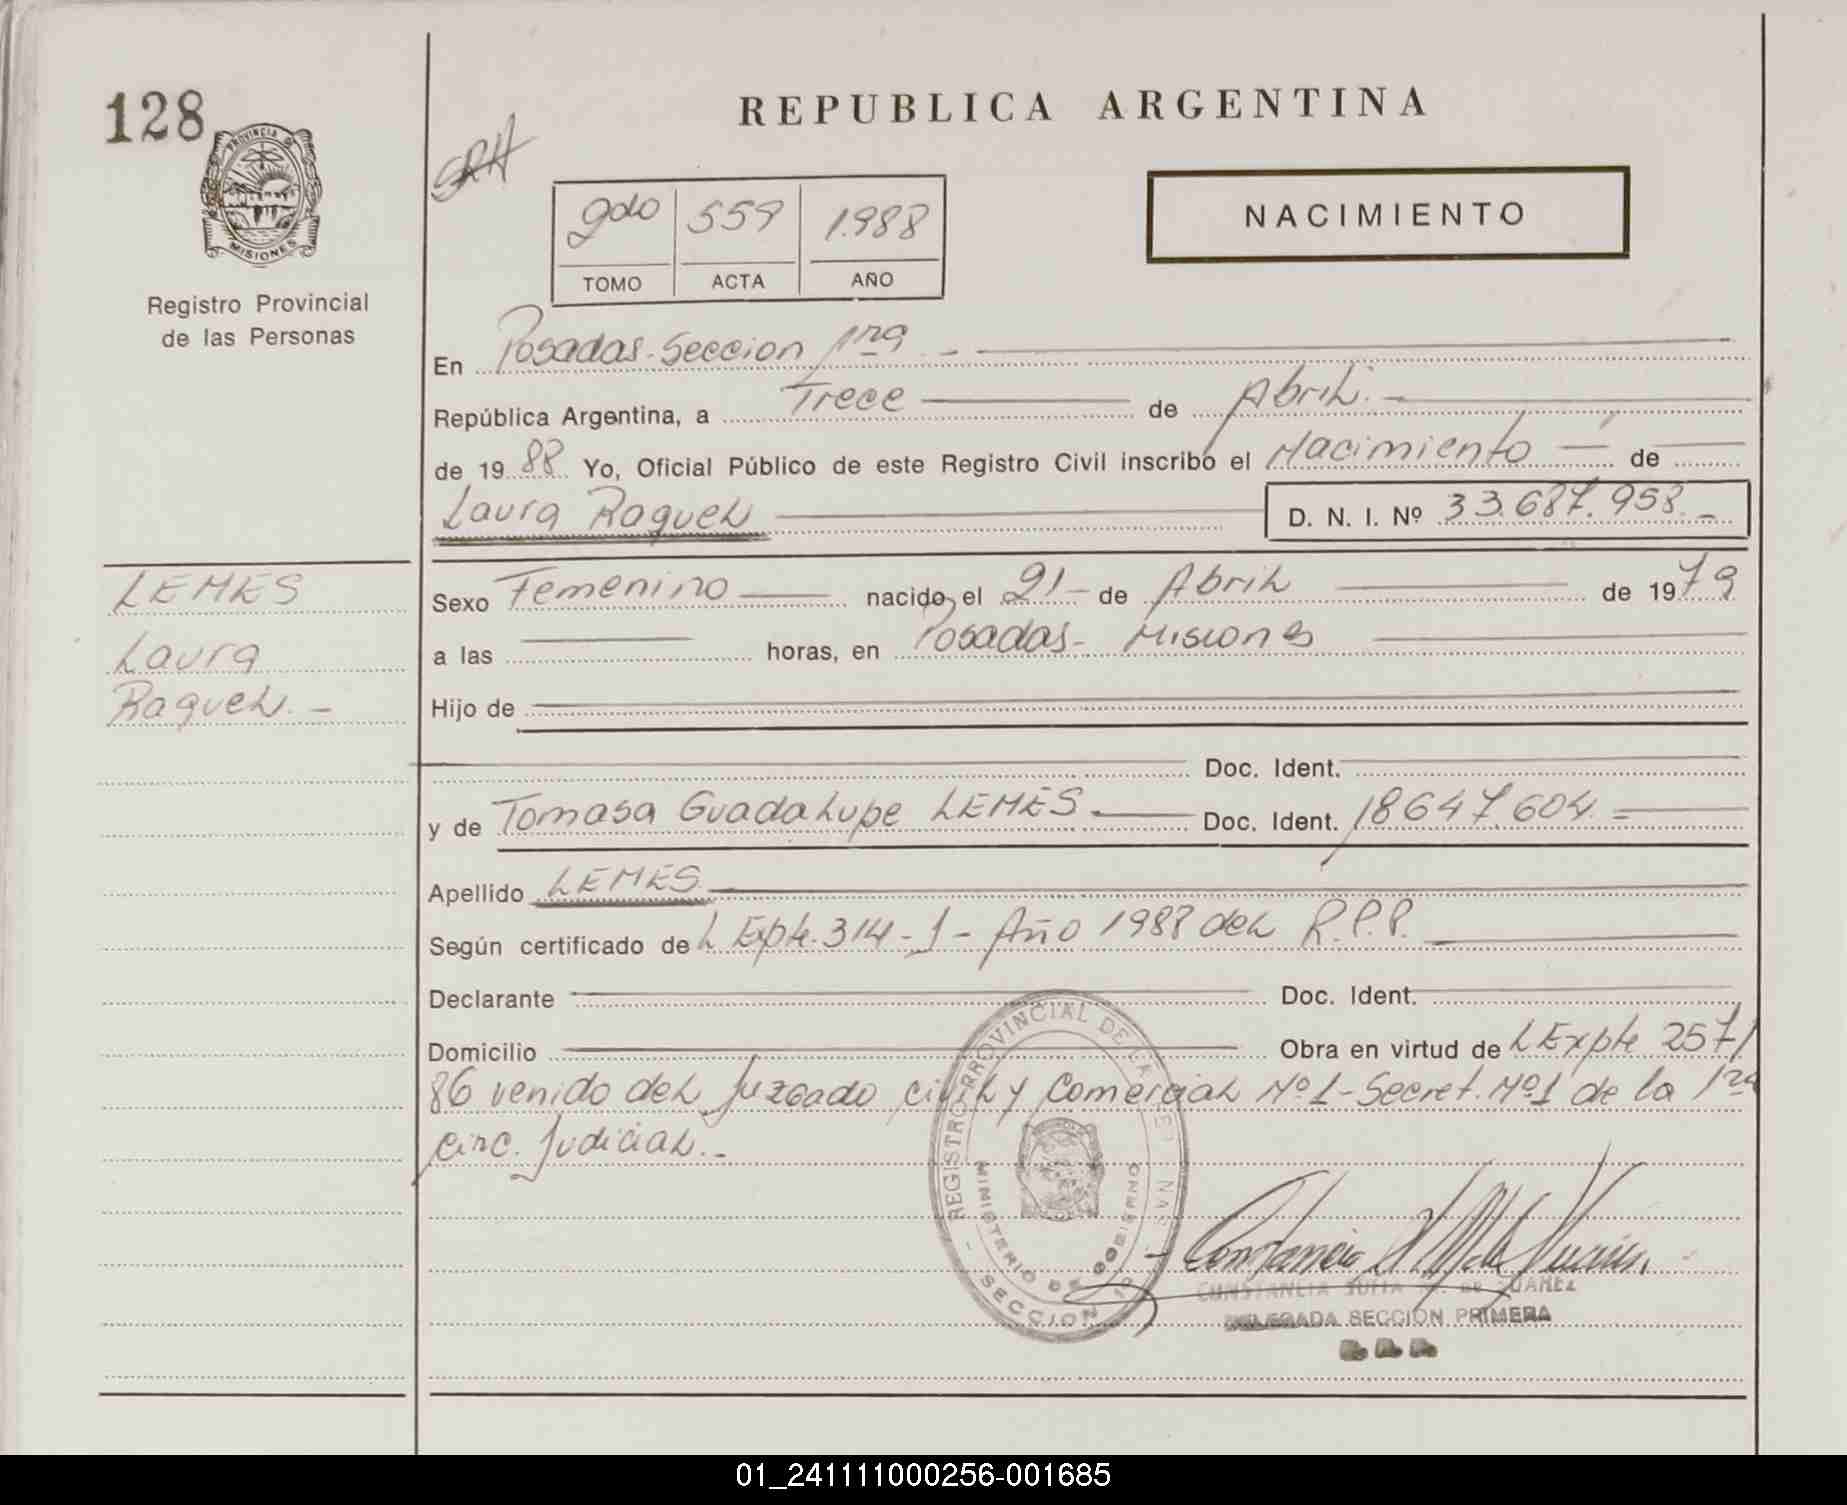 128
REPUBLICA ARGENTINA
PROVINCIA DE
MISIONES
Registro Provincial
de las Personas
SRH
2do 559 1.988
TOMO ACTA AÑO
NACIMIENTO
En Posadas - Seccion 1ra -
República Argentina, a Trece de Abril. -
de 19 88 Yo, Oficial Público de este Registro Civil inscribo el Nacimiento - de
Laura Raquel D. N. I. Nº 33.687.958. -
LEMES
Laura
Raquel. -
Sexo Femenino nacido el 21 - de Abril de 19 79
a las horas, en Posadas - Misiones
Hijo de
Doc. Ident.
y de Tomasa Guadalupe LEMES - Doc. Ident. 18647.604. =
Apellido LEMES
Según certificado de L Expte. 314 - 1 - Año 1988 del R.P.P.
Declarante Doc. Ident.
Domicilio Obra en virtud de L Expte 257/
86 venido del Juzgado Civil y Comercial Nº 1 - Secret. Nº 1 de la 1ra
Circ. Judicial. -
REGISTRO PROVINCIAL DE LAS PERSONAS
MINISTERIO DE GOBIERNO
- SECCION 1ª -
CONSTANCIA SOFIA M. DE SUAREZ
DELEGADA SECCION PRIMERA
01_241111000256-001685